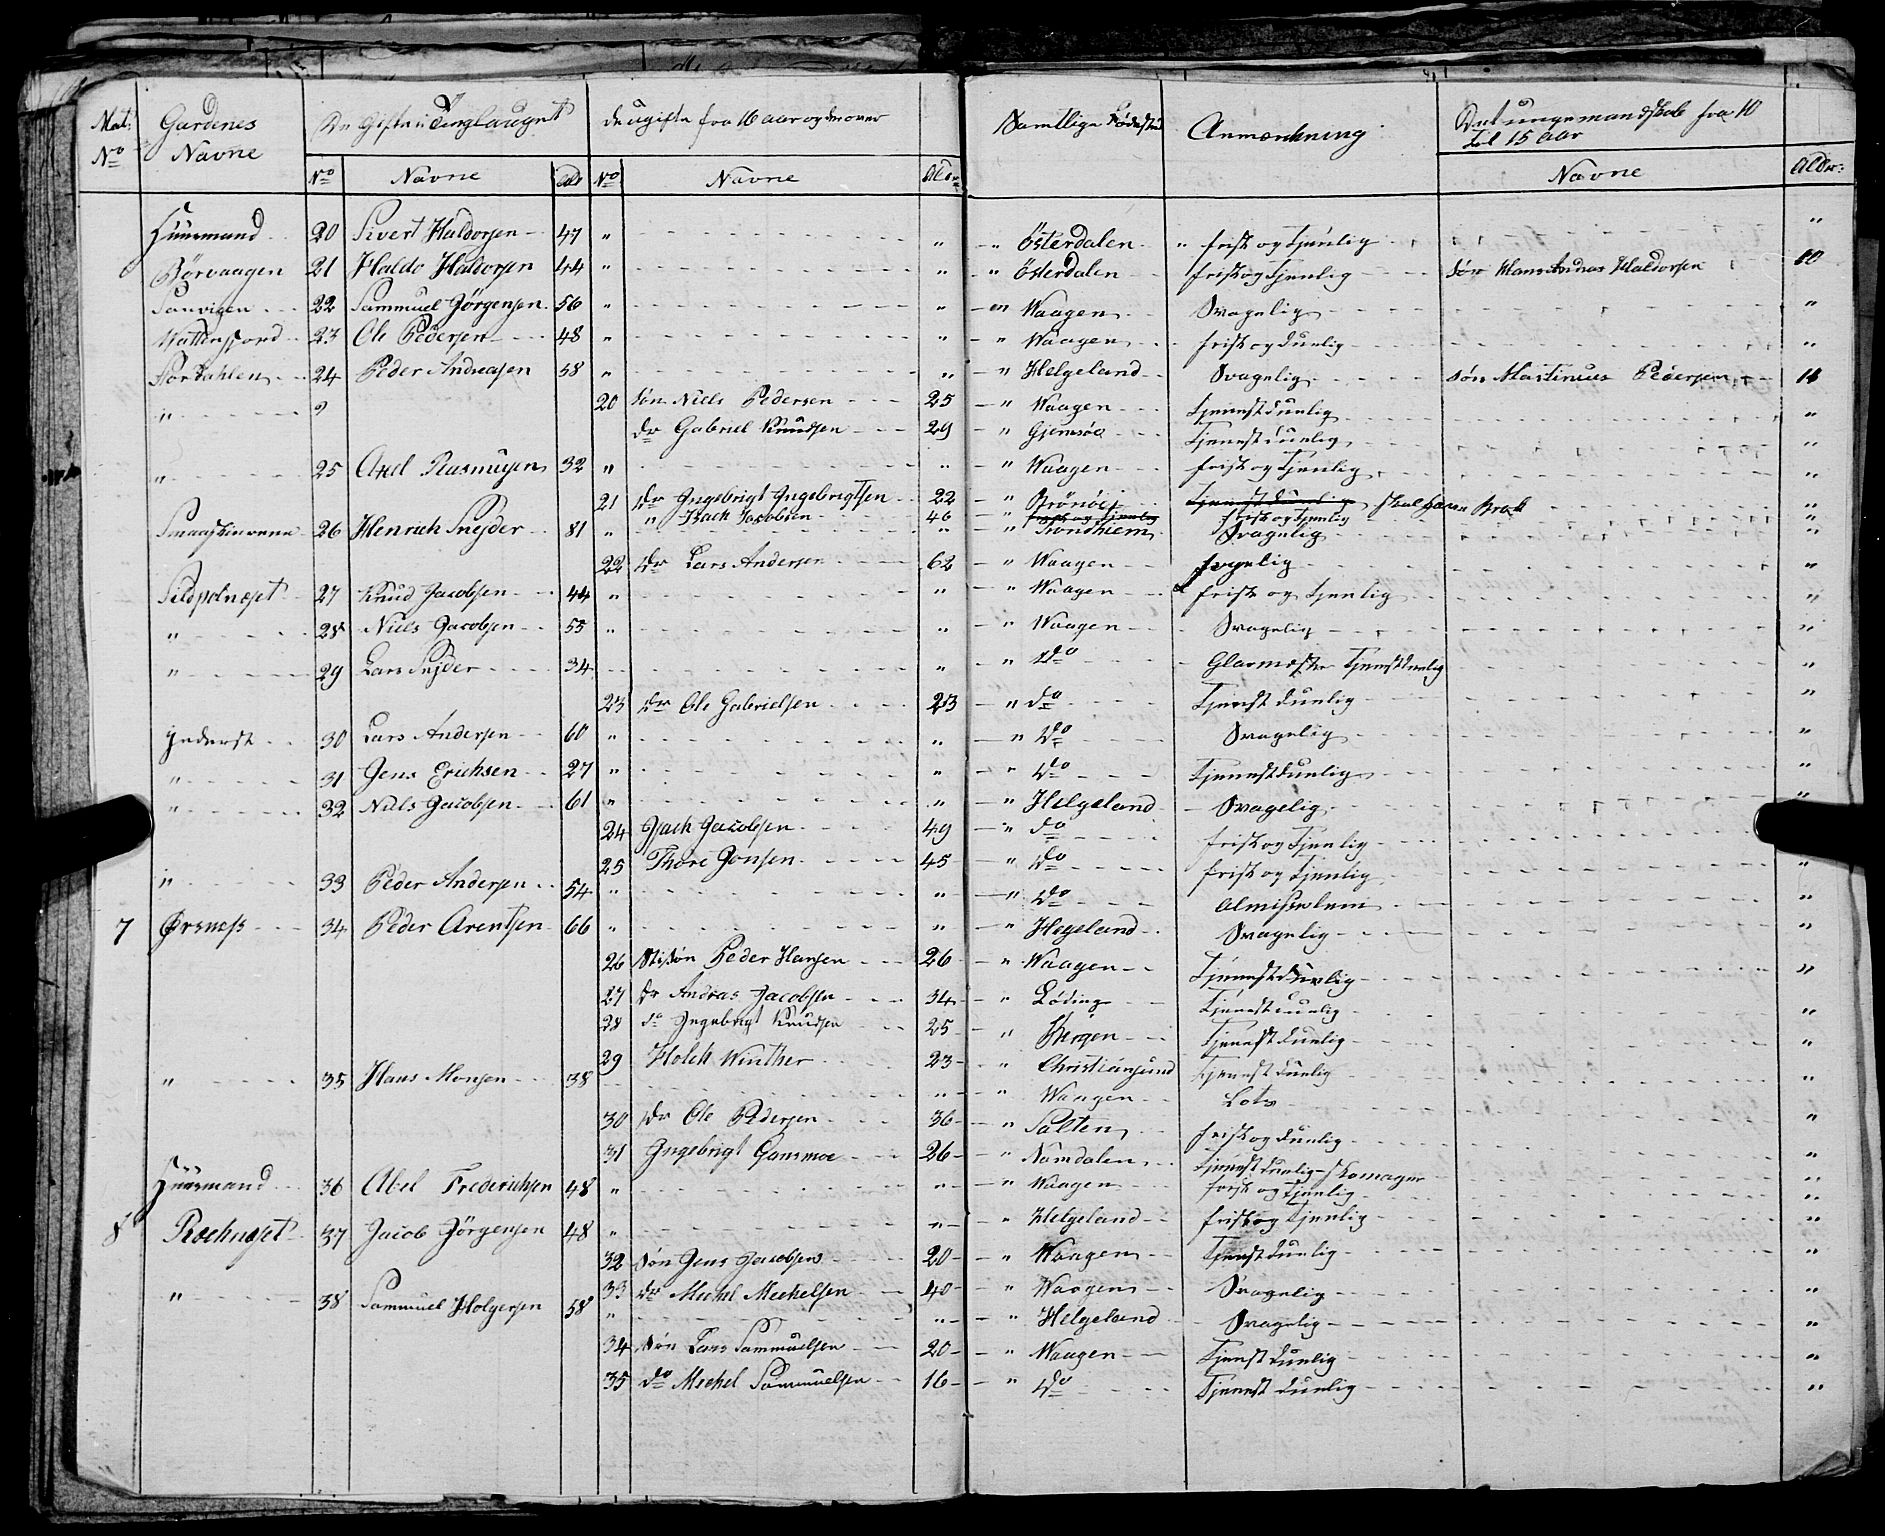 Mat: Gardenes De Gifte i Tinglauget de ugifte fra 16 aar og derover Samtlige Fødested Anmærkning Det unge mandskab fra 10
No Navne til 15 aar
No Navne No Navne Alder Navne Alder:
Huusmand 20 Sivert Haldorsen 47 " " " Österdalen " frisk og Tjenlig "
Börvaagen 21 Haldo Haldorsen 44 " " " Österdalen frisk og Tjenlig Søn Hans Andras Haldorsen 10
Sanvigen 22 Sammuel Jörgensen 56 " " Waagen Svagelig "
23 Ole Pedersen 48 " " " Waagen frisk og duelig "
24 Peder Andreasen 58 " " " Helgeland Svagelig søn Martinius Pedersen 14
" " 20 søn Niels Pedersen 25 " Waagen Tjenestduelig "
dr Gabriel Knudsen 29 " Gjemsöe Tjenestduelig "
" 25 Axel Rasmusen 32 " " " Waagen frisk og Tjenlig "
21 dr Ingebrigt Ingebrigtsen 22 " Brönöe Tjenestduelig "
" Isach Jacobsen 46 " frisk og Tjenlig "
26 Henrich Snejder 81 " " " Trondhiem Svagelig "
22 dr Lars Andersen 62 " Waagen "
Sildpolneset 27 Knud Jacobsen 44 " " " Waagen frisk og Tjenlig "
" 28 Niels Jacobsen 55 " " " Waagen Svagelig "
" 29 Lars Snejder 34 " " do Glarmæster Tjenestduelig "
23 dr Ole Gabrielsen 23 " do Tjenestduelig "
Inderst 30 Lars Andersen 60 " " " do Svagelig "
" 31 Jens Erichsen 27 " " " do Tjenestduelig "
" 32 Niels Jacobsen 61 " " " Helgeland Svagelig "
24 Isach Jacobsen 49 " do frisk og Tjenlig
25 Thore Jonsen 45 " do frisk og Tjenlig "
" 33 Peder Andersen 54 " " " do Almisselem "
7 Ørsneß 34 Peder Arentsen 66 " " " Hegeland Svagelig "
26 Stifsön Peder Hansen 26 " Waagen Tjenestduelig "
27 dr Andras Jacobsen 34 " Löding Tjenestduelig "
28 do Ingebrigt Knudsen 25 " Bergen Tjenestduelig "
29 Holch Winther 23 " Christiansund Tjenestduelig "
" 35 Hans Monsen 38 " " Waagen Lots "
30 dr Ole Pedersen 36 " Salten frisk og duelig "
31 Ingebrigt Gansmoe 26 " Namdalen Tjenestduelig Skomager "
Huusmand 36 Abel Frederichsen 48 " " " Waagen frisk og Tjenlig "
8 Rochneset 37 Jacob Jörgensen 48 " " " Helgeland frisk og Tjenlig "
32 Søn Jens Jacobsen 20 " Waagen Tjenestduelig "
33 dr Michel Mechelsen 40 " Waagen Svagelig "
" 38 Sammuel Holgersen 58 " " " Helgeland Svagelig "
34 søn Lars Sammuelsen 20 " Waagen Tjenestduelig "
35 do Mechel Sammuelsen 16 " do Tjenestduelig "